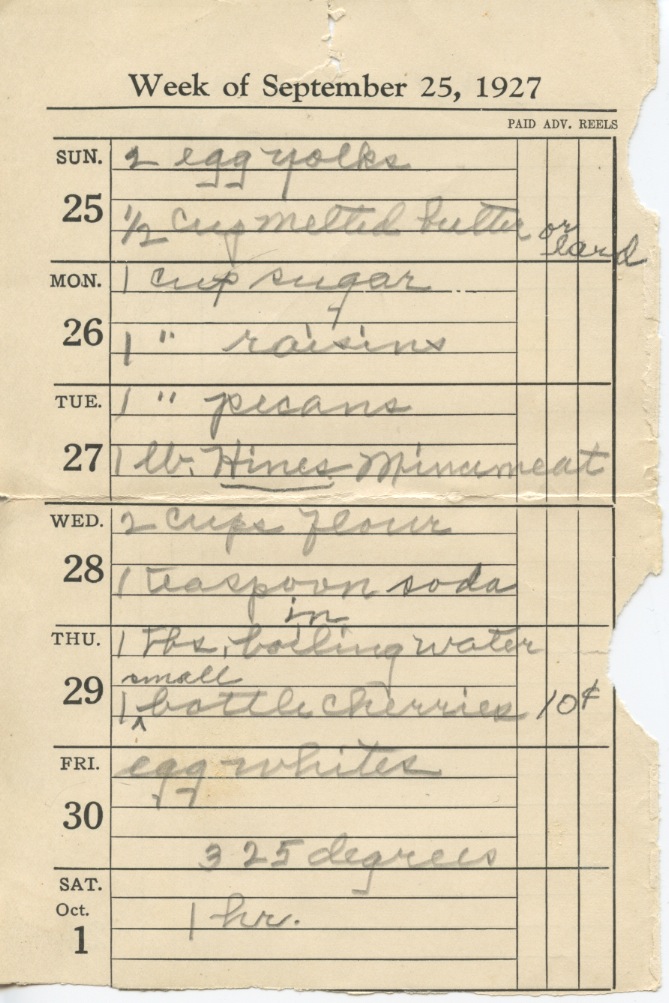 Week of September 25, 1927
PAID ADV. REELS
SUN. 2 egg yolks
25 1/2 cup melted butter or lard
MON. 1 cup sugar
26 1 " raisins
TUE. 1 " pecans
27 1 lb. Hines Mincemeat
WED. 2 cups flour
28 1 teaspoon soda
in
THU. 1 Tbs. boiling water
small
29 1 ^ bottle cherries 10¢
FRI. egg whites
30
325 degrees
SAT.
Oct. 1 hr.
1